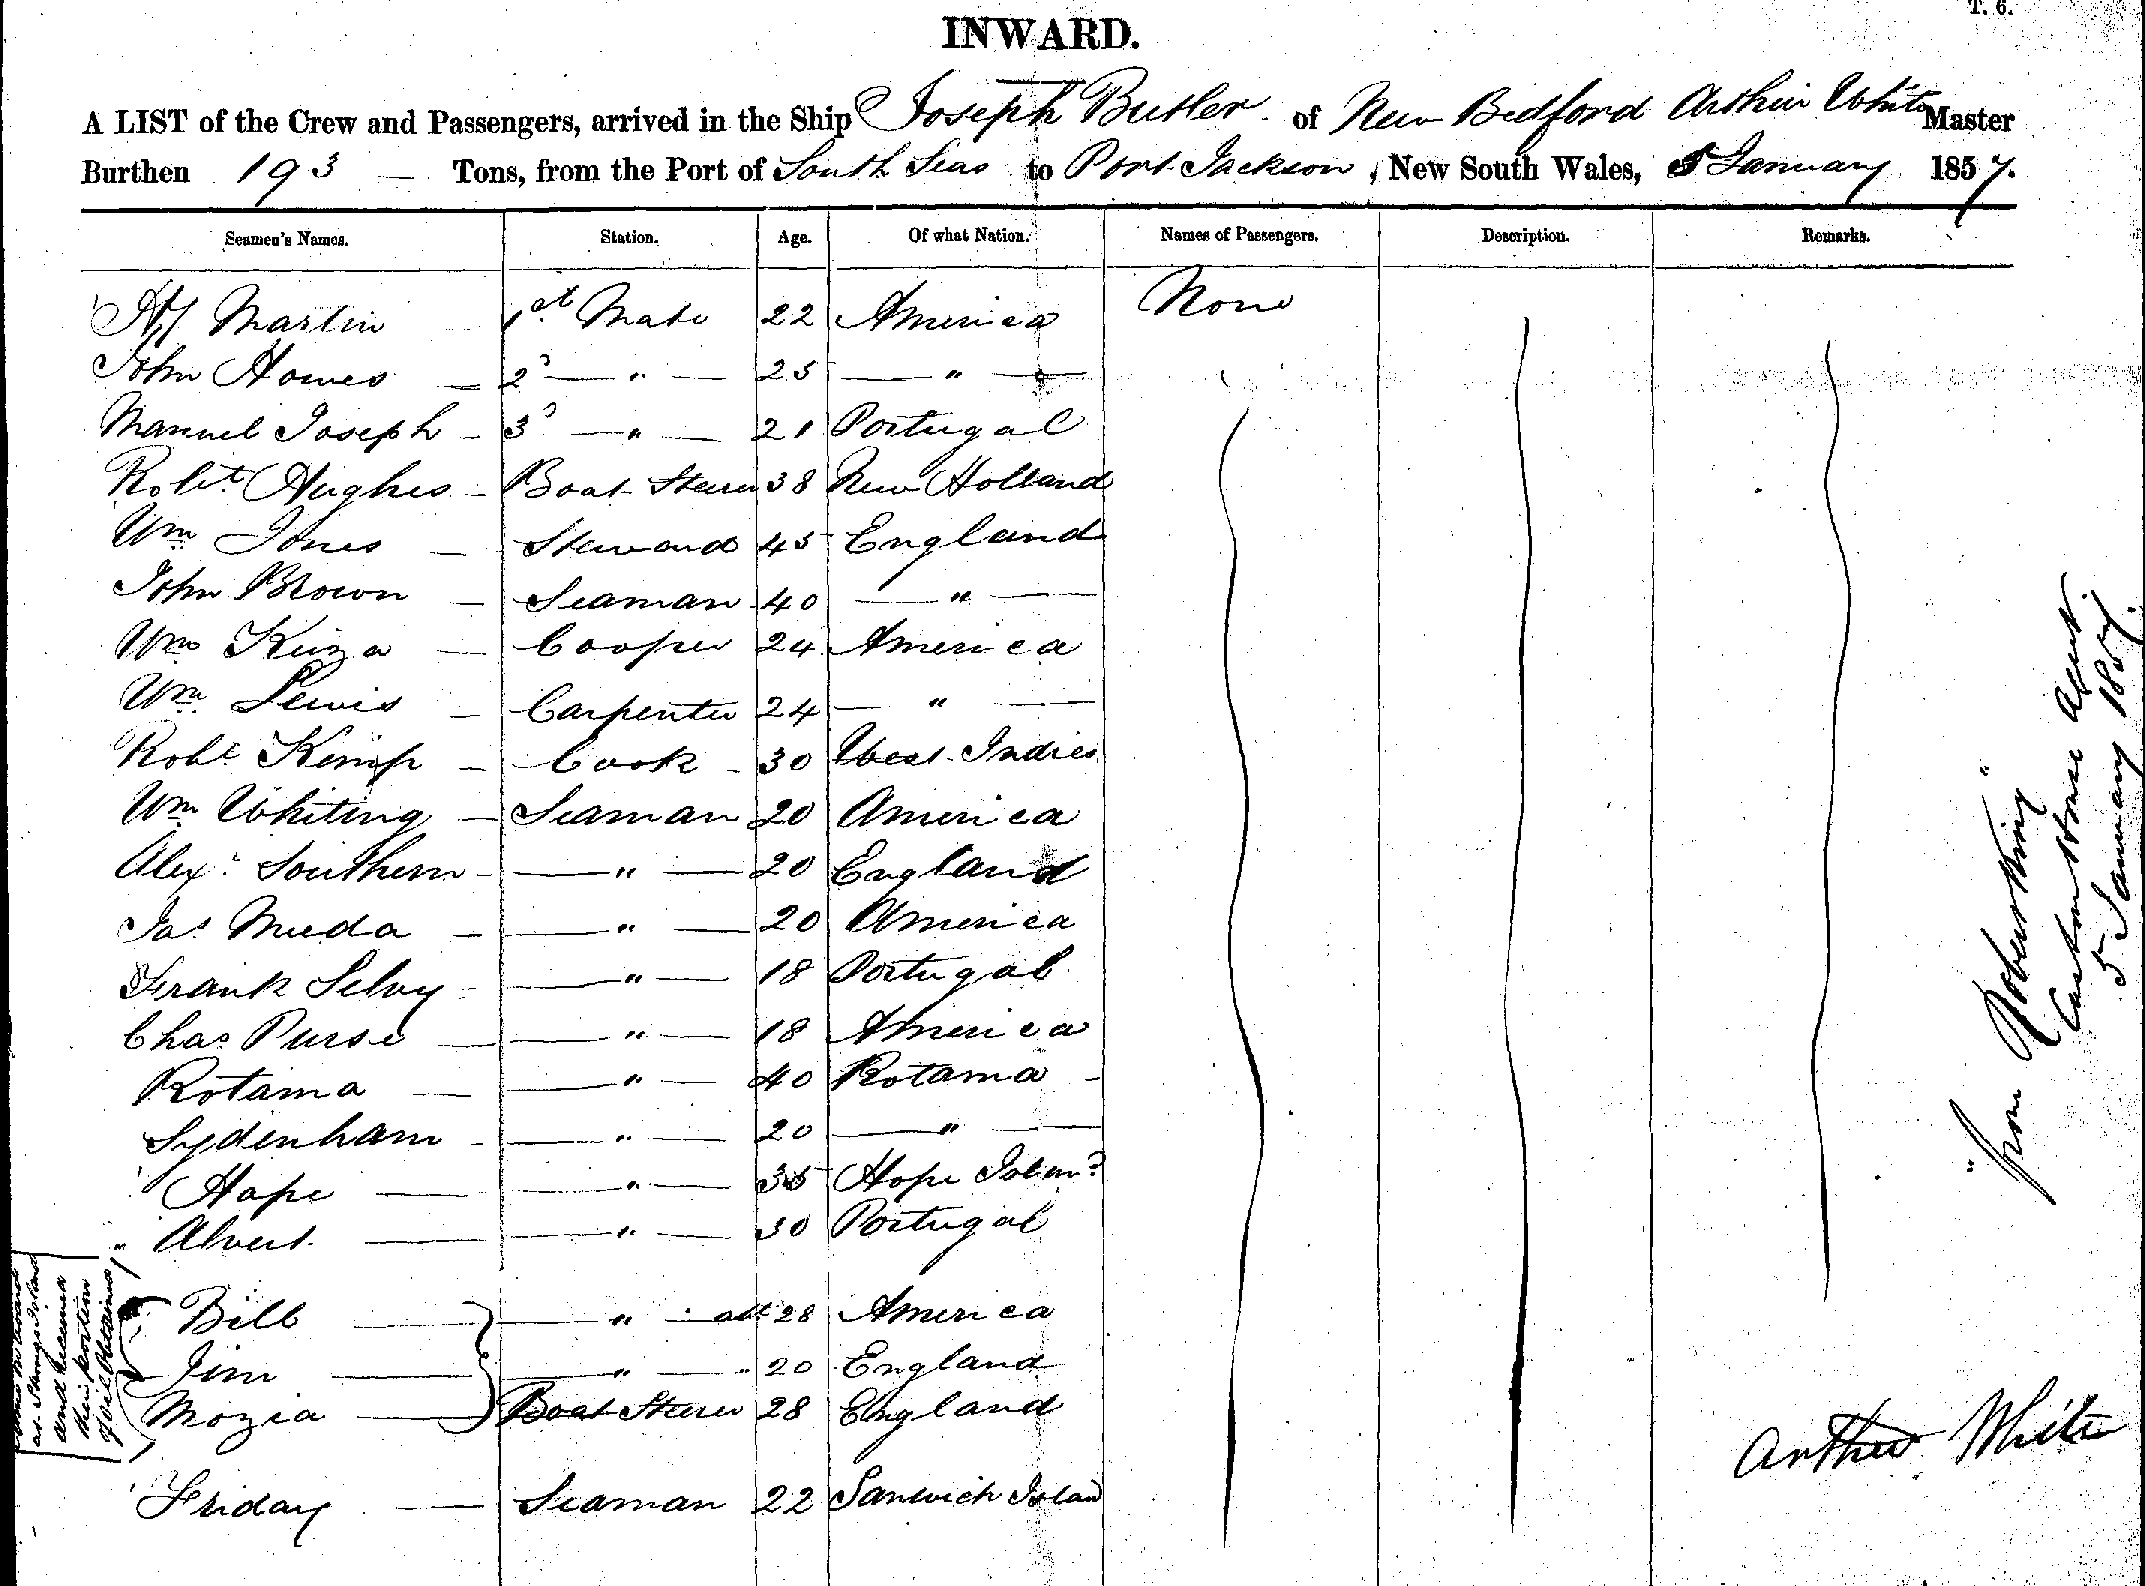 T. 6.
INWARD.
A LIST of the Crew and Passengers, arrived in the Ship Joseph Butler of New Bedford Arthur White Master
Burthen 193 — Tons, from the Port of South Seas to Port Jackson, New South Wales, 5 January 1857.
Seamen's Names. Station. Age. Of what Nation. Names of Passengers. Description. Remarks.
Martin 1st Mate 22 America None
John Howes — 2d — " — 25 — " —
Manuel Joseph — 3d — " — 21 Portugal
Robt. Hughes — Boat Steerer 38 New Holland
Wm. Jones — Steward 45 England
John Brown — Seaman 40 — " —
Wm — Cooper 24 America
Wm. Lewis — Carpenter 24 — " —
Robt. Kemp — Cook — 30 West Indies
Wm Whiting — Seaman 20 America
Alexr. Southern — — " — 20 England
Jas — — " — 20 America
Frank Selvy — " — 18 Portugal
Chas Purse — — " — 18 America
Rotama — — " — 40 Rotama —
Sydenham — — " — 20 — " —
Hope — — " — 35 Hope Islan d
" Alvert. — — " — 30 Portugal
Bill — — " — 28 America
Jim — — " — " 20 England
Mozia — Boat Steerer 28 England
Friday — Seaman 22 Sanwich Islan d
and
their portion
of oil
"from Robert King"
Custom House Agent.
5 January 1857.
Arthur White